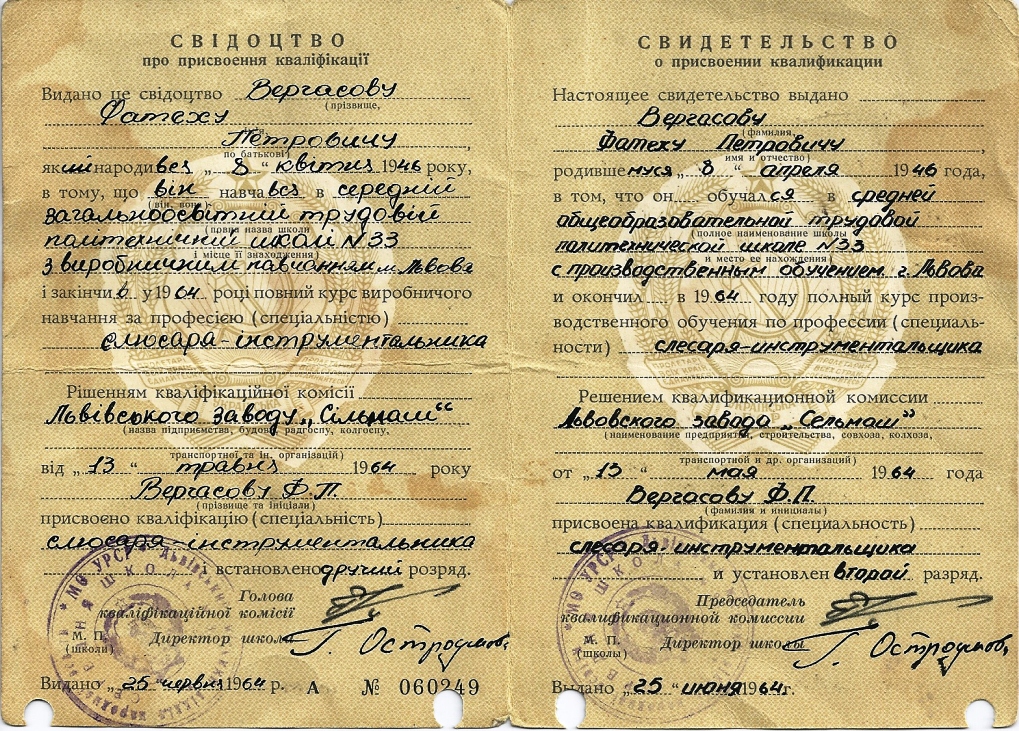 СВІДОЦТВО
про присвоєння кваліфікації
Видано це свідоцтво Вергасову
(прізвище,
Фатеху
Петровичу
по батькові)
який народивсь „ 8 “ квітня 1946 року,
в тому, що він навчавсь в середній
(він, вона)
загальноосвітний трудовій
(повна назва школи
политехничній школі N 33
і місце її знаходження)
з виробничним навчанням м. Львова
і закінчив у 1964 році повний курс виробничого
навчання за професією (спеціальністю)
слюсара-інструментальника
Рішенням кваліфікаційної комісії
Львівського заводу „Сільмаш“
(назва підприємства, будови, радгоспу, колгоспу,
транспортної та ін. організацій)
від „ 13 “ травня 1964 року
Вергасову Ф.П.
(прізвище та ініціали)
присвоєно кваліфікацію (спеціальність)
слюсаря-інструментальника
і встановлено другий розряд.
Голова
кваліфікаційної комісії
М. П.
(школи)
Директор школи Г. Остро
Видано „ 25 “ червня 1964 р. А № 060249
СВИДЕТЕЛЬСТВО
о присвоении квалификации
Настоящее свидетельство выдано
Вергасову
(фамилия,
Фатеху Петровичу
имя и отчество)
родившемуся „ 8 “ апреля 1946 года,
в том, что он обучался в средней
общеобразовательной трудовой
(полное наименование школы
политехнической школе N 33
и место ее нахождения)
с производственным обучением г. Львова
и окончил в 1964 году полный курс произ-
водственного обучения по профессии (специаль-
ности) слесаря-инструментальщика
Решением квалификационной комиссии
Львовского завода „Сельмаш”
(наименование предприятия, строительства, совхоза, колхоза,
транспортной и др. организаций)
от „ 13 “ мая 1964 года
Вергасову Ф.П.
(фамилия и инициалы)
присвоена квалификация (специальность)
слесаря-инструментальщика
и установлен второй разряд.
Председатель
квалификационной комиссии
М. П.
(школы)
Директор школы Г. Остро
Выдано „ 25 “ июня 1964 г.